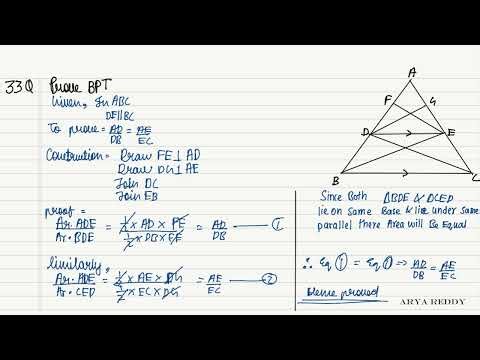 33Q Prove BPT
Given, In ABC
DE||BC
To prove = AD/DB = AE/EC
Construction = Draw FE ⊥ AD
Draw DG ⊥ AE
Join DC
Join EB
proof =
Ar. ADE / Ar. BDE = 1/2 × AD × FE / 1/2 × DB × EF = AD/DB — ①
Similarly,
Ar. ADE / Ar. CED = 1/2 × AE × DG / 1/2 × EC × DG = AE/EC — ②
A
F
G
D
E
B
C
Since Both ΔBDE & ΔCED
lie on Same Base & lie under Same
parallel there Area will Be Equal
∴ Eq ① = Eq ② ⇒ AD/DB = AE/EC
Hence proved
ARYA REDDY